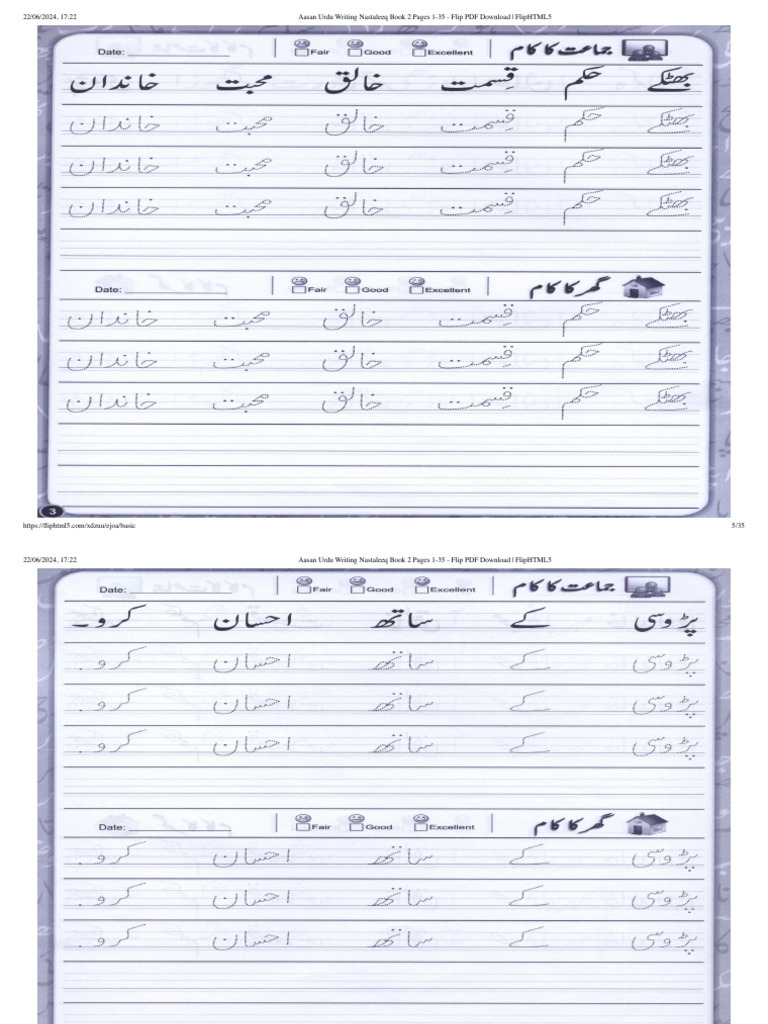 22/06/2024, 17:22 Aasan Urdu Writing Nastaleeq Book 2 Pages 1-35 - Flip PDF Download | FlipHTML5
جماعت کا کام Excellent Good Fair Date:
بھٹکے حکم قِسمت خالق محبت خاندان
بھٹکے حکم قِسمت خالق محبت خاندان
بھٹکے حکم قِسمت خالق محبت خاندان
بھٹکے حکم قِسمت خالق محبت خاندان
گھر کا کام Excellent Good Fair Date:
بھٹکے حکم قِسمت خالق محبت خاندان
بھٹکے حکم قِسمت خالق محبت خاندان
بھٹکے حکم قِسمت خالق محبت خاندان
3
https://fliphtml5.com/xdzuu/ejoa/basic 5/35
22/06/2024, 17:22 Aasan Urdu Writing Nastaleeq Book 2 Pages 1-35 - Flip PDF Download | FlipHTML5
جماعت کا کام Excellent Good Fair Date:
پڑوسی کے ساتھ احسان کرو۔
پڑوسی کے ساتھ احسان کرو۔
پڑوسی کے ساتھ احسان کرو۔
پڑوسی کے ساتھ احسان کرو۔
گھر کا کام Excellent Good Fair Date:
پڑوسی کے ساتھ احسان کرو۔
پڑوسی کے ساتھ احسان کرو۔
پڑوسی کے ساتھ احسان کرو۔